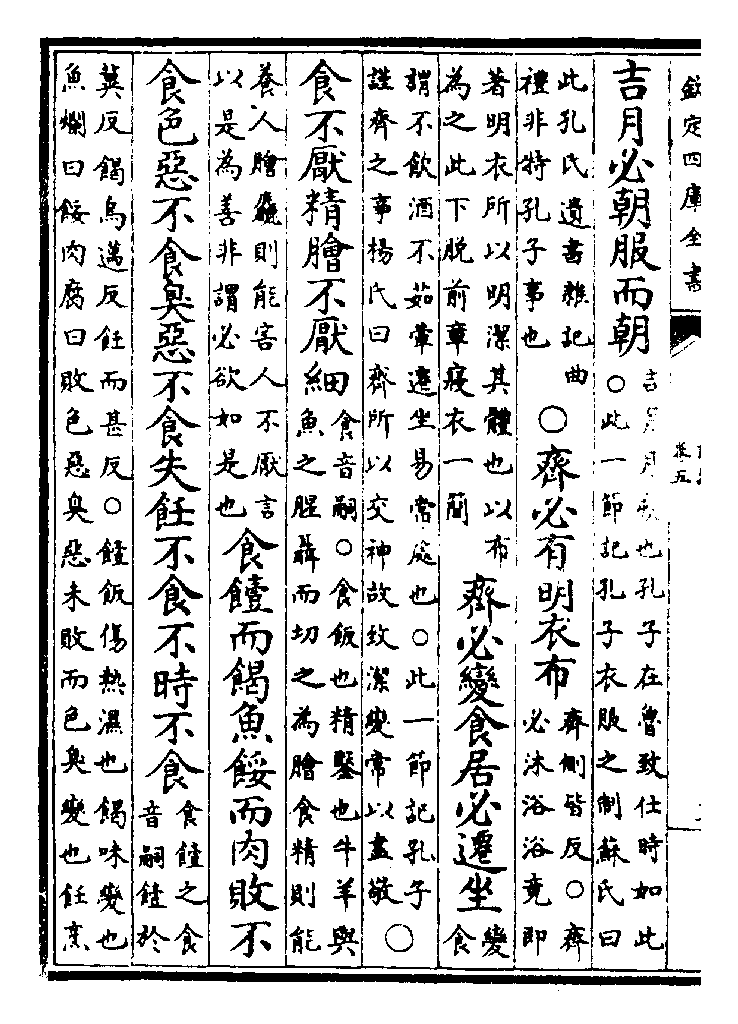 欽定四庫全書
卷五
吉月必朝服而朝
吉月月朔也孔子在魯致仕時如此
○此一節記孔子衣服之制蘇氏曰
此孔氏遺書雜記曲
禮非特孔子事也
○齊必有明衣布
齊側皆反○齊
必沐浴浴竟即
著明衣所以明潔其體也以布
為之此下脫前章寢衣一簡
齊必變食居必遷坐
變
食
謂不飲酒不茹葷遷坐易常處也○此一節記孔子
謹齊之事楊氏曰齊所以交神故致潔變常以盡敬
○
食不厭精膾不厭細
食音嗣○食飯也精鑿也牛羊與
魚之腥聶而切之為膾食精則能
養人膾麤則能害人不厭言
以是為善非謂必欲如是也
食饐而餲魚餒而肉敗不
食色惡不食臭惡不食失飪不食不時不食
食饐之食
音嗣饐於
冀反餲烏邁反飪而甚反○饐飯傷熱濕也餲味變也
魚爛曰餒肉腐曰敗色惡臭惡未敗而色臭變也飪烹